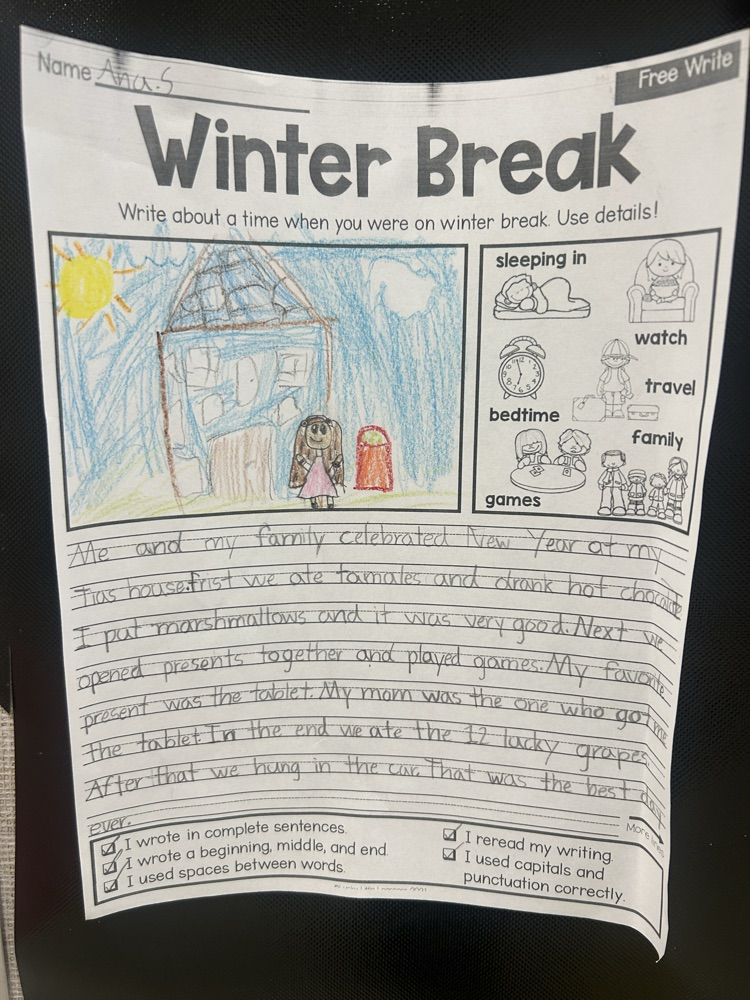 Name Ana.S
Free Write
Winter Break
Write about a time when you were on winter break. Use details!
sleeping in
watch
travel
bedtime
family
games
Me and my family celebrated New Year at my
Tias house.frist we ate tamales and drank hot chocolate
I put marshmallows and it was very good. Next we
opened presents together and played games. My favorite
present was the tablet. My mom was the one who got me
the tablet. In the end we ate the 12 lucky grapes
After that we hung in the car. That was the best day
ever.
More lines
I wrote in complete sentences.
I wrote a beginning, middle, and end.
I used spaces between words.
I reread my writing.
I used capitals and
punctuation correctly.